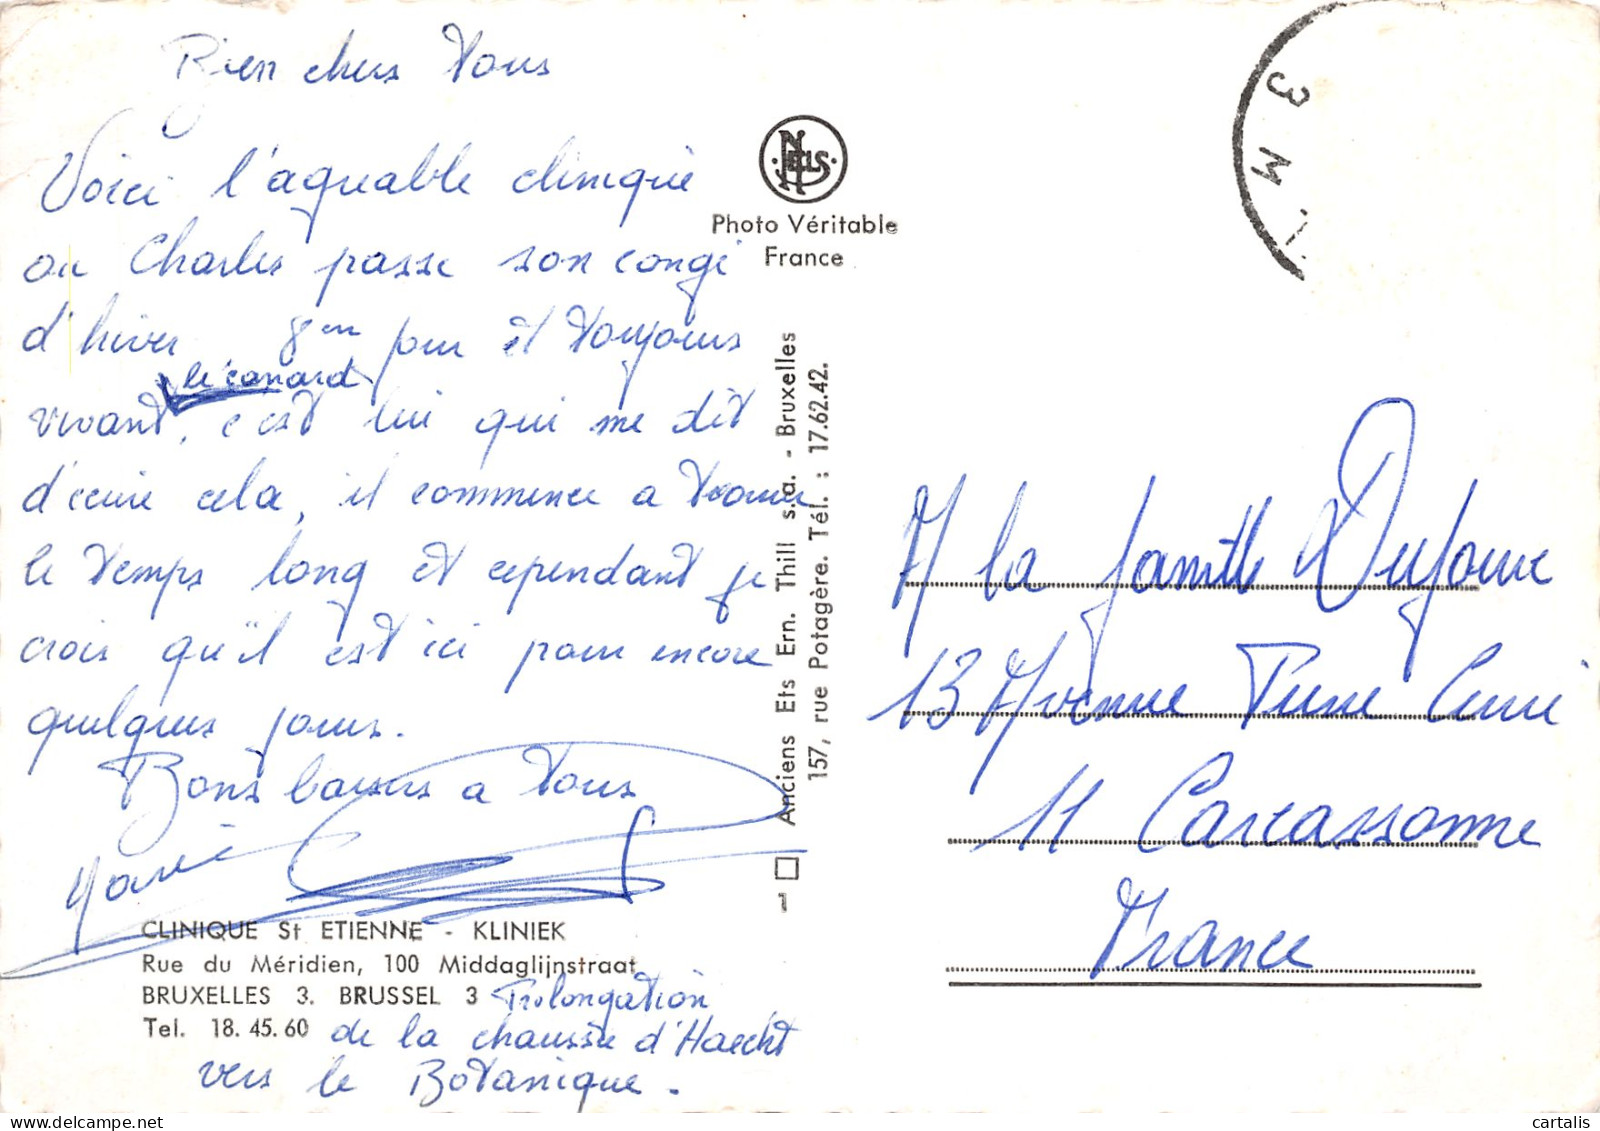 Bien chers Vous
Voici l'agréable clinique
ou Charles passe son congé
d'hiver 8em jour et toujours
le canard
vivant, c'est lui qui me dit
d'écrire cela, il commence a trouver
le temps long et cependant je
crois qu'il est ici pour encore
quelques jours.
Bons baisers a tous
CLINIQUE St ETIENNE - KLINIEK
Rue du Méridien, 100 Middaglijnstraat
BRUXELLES 3. BRUSSEL 3 Prolongation
Tel. 18.45.60 de la chaussée d'Haecht
vers le Botanique.
NELS
Photo Véritable
France
Anciens Ets Ern. Thill s.a. - Bruxelles
157, rue Potagère. Tél. : 17.62.42.
1
3 M
A la famille
13 Avenue Pierre Curie
11 Carcassonne
France
cartalis